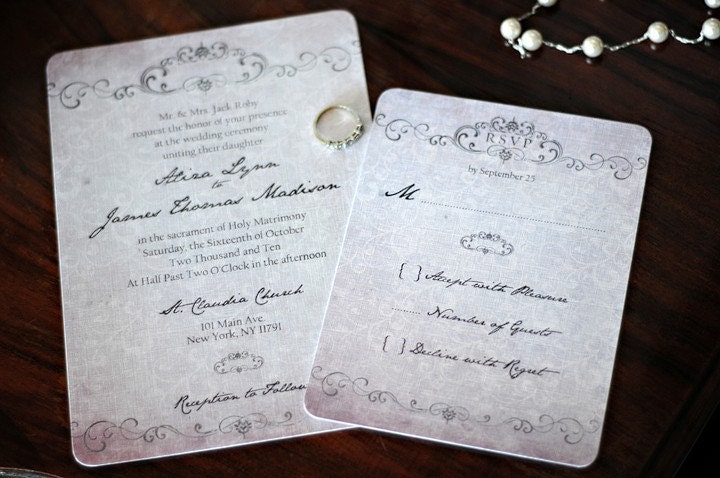 Mr. & Mrs. Jack Roby
request the honor of your presence
at the wedding ceremony
uniting their daughter
Aliza Lynn
to
James Thomas Madison
in the sacrament of Holy Matrimony
Saturday, the Sixteenth of October
Two Thousand and Ten
At Half Past Two O'Clock in the afternoon
St. Claudia Church
101 Main Ave.
New York, NY 11791
Reception to Follow
RSVP
by September 25
M
[ ] Accept with Pleasure
Number of Guests
[ ] Decline with Regret